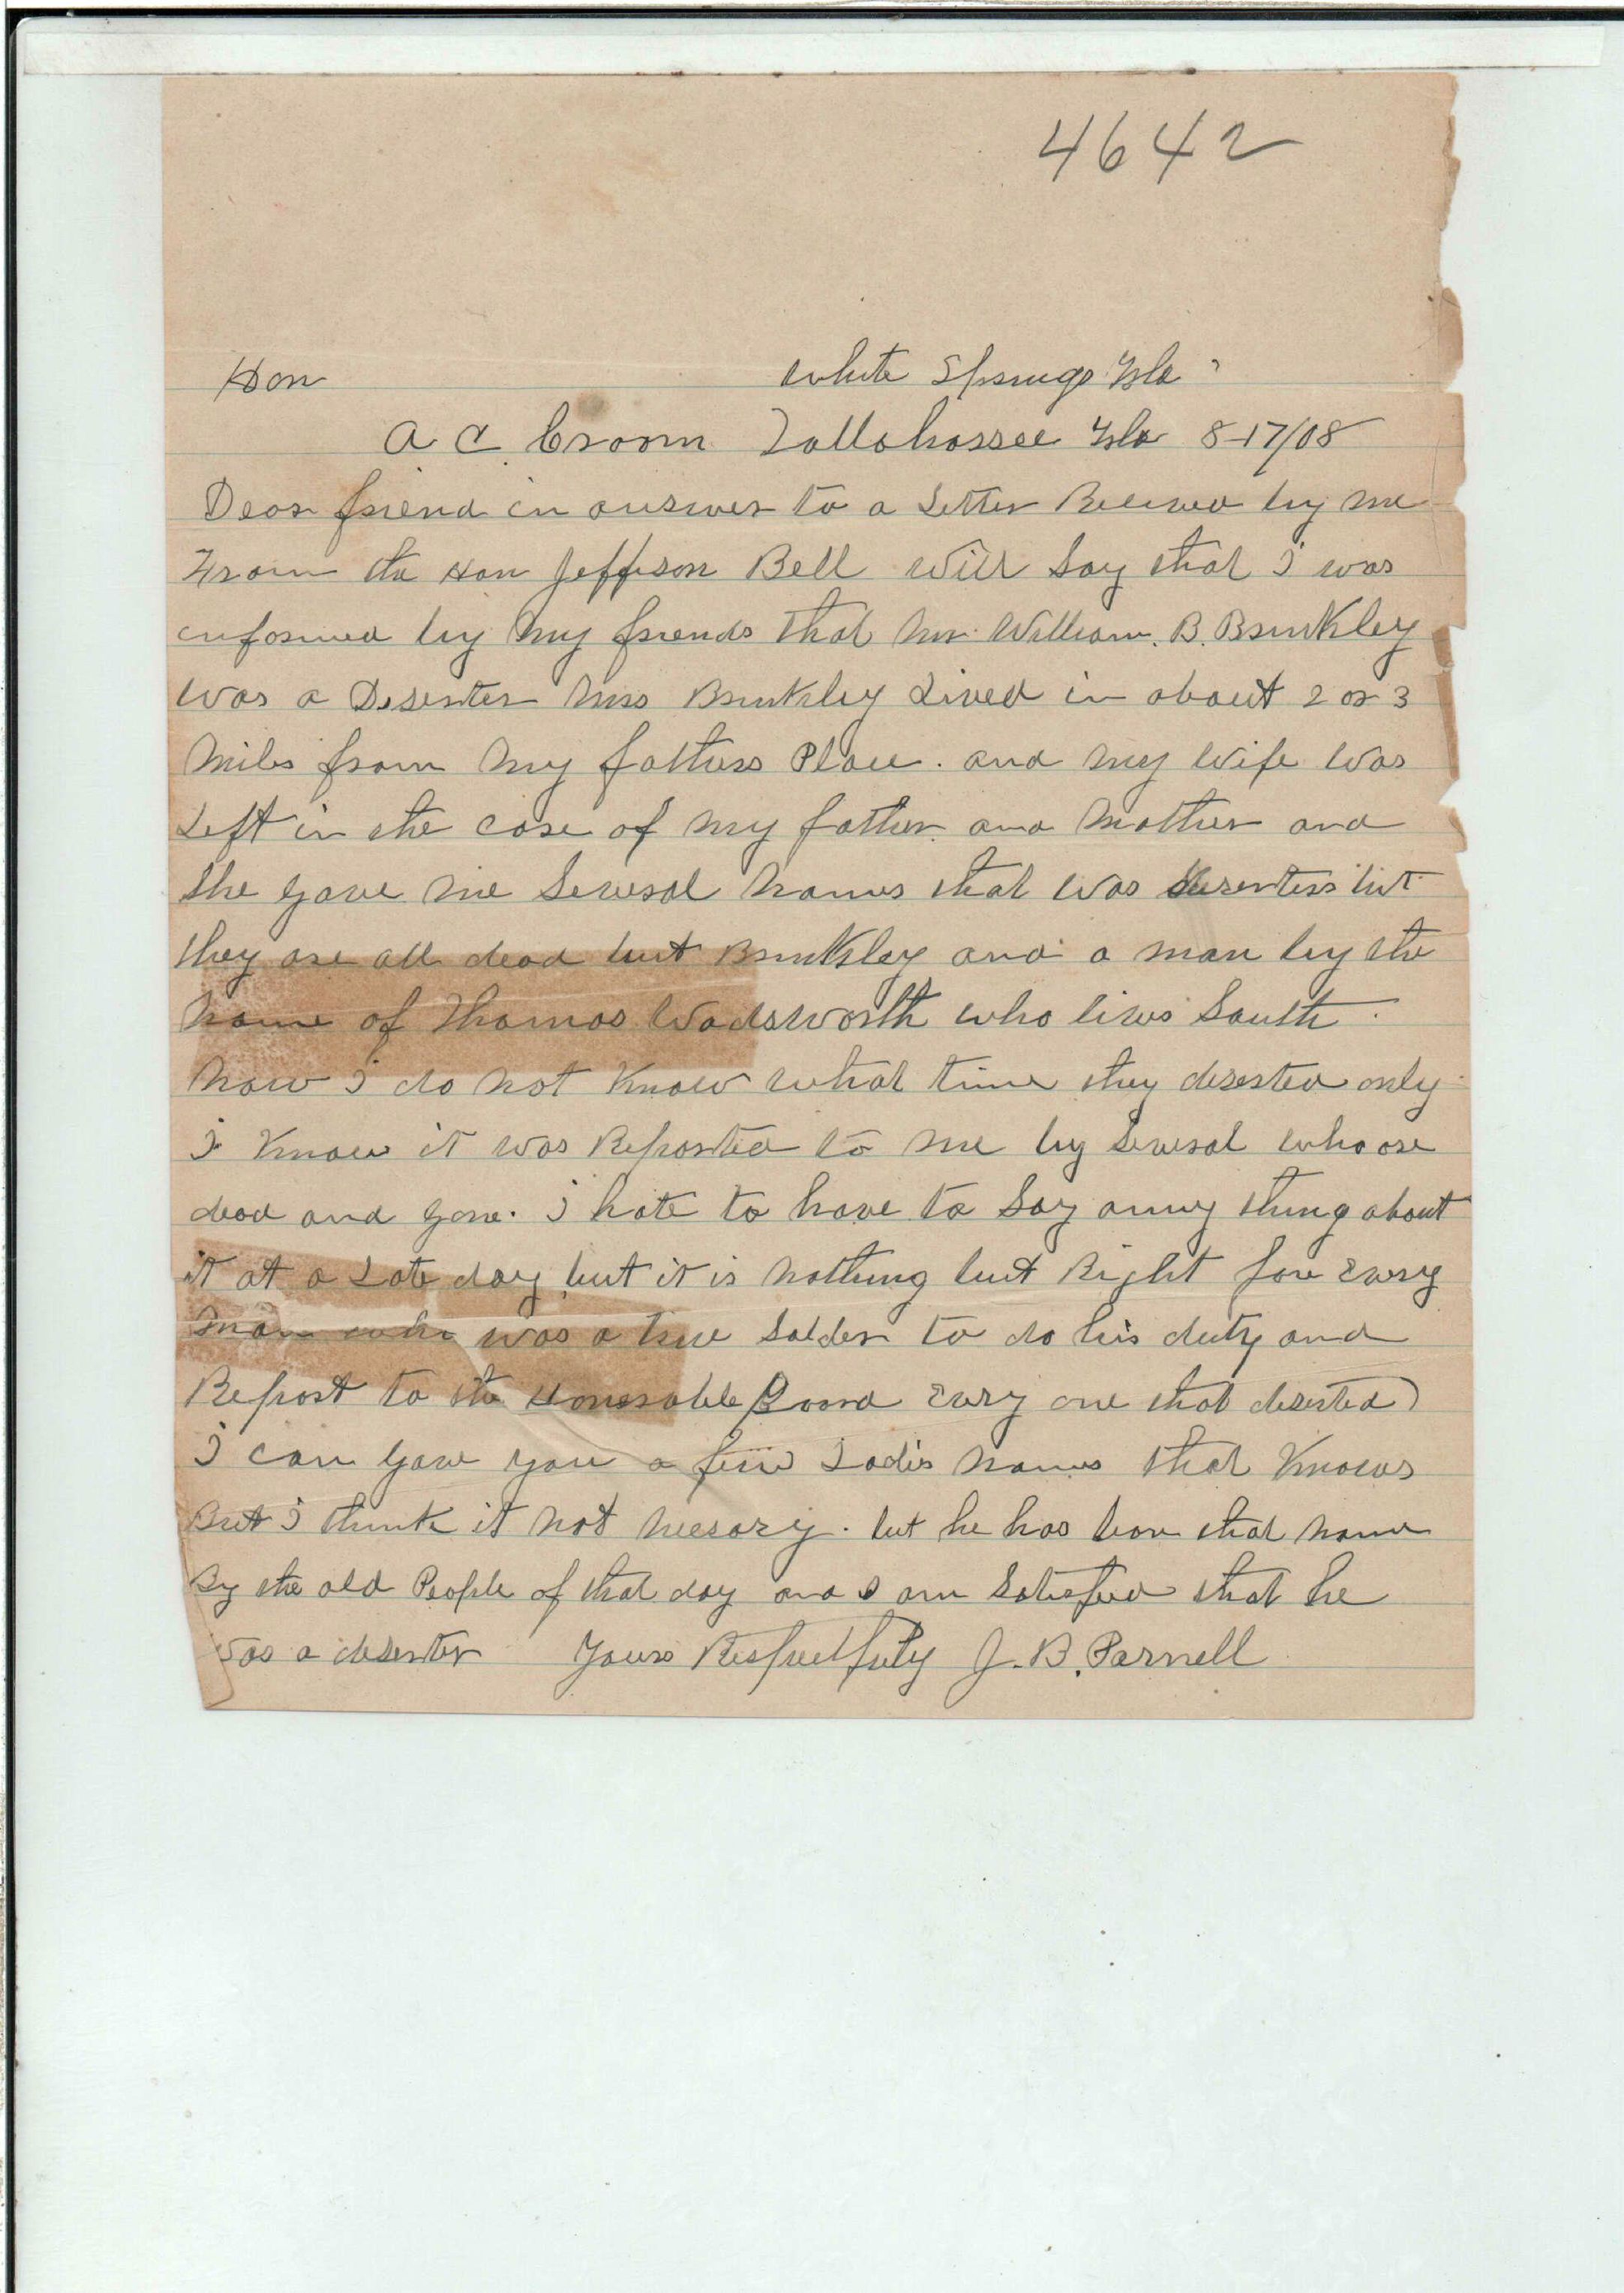 4642
Hon White Springs Fla
A C Croom Tallahassee Fla 8-17/08
Dear friend in answer to a Letter Recived by me
From the Hon Jeffison Bell will Say that I was
informed by my friends that Mr. William. B. Brinkley
was a Deserter Mrs Brinkley Lived in about 2 or 3
Miles from my fathers Place. and my wife was
Left in the care of my father and Mother and
She gave me Several names that was deserters but
they are all dead but Brinkley and a man by the
name of Thomas Wadsworth who lives South.
Now I do not know what time they deserted only
I Know it was Reported to me by Several who are
dead and gone. I hate to have to Say anny thing about
it at a Late day, but it is nothing but Right for Evry
man who was a true Solder to do his duty and
Report to the Honorable Board Evry one that deserted
I can gave you a few Ladis names that Knows
But I think it not nesory. but he has bore that name
By the old People of that day and I am Satisfied that he
was a deserter Yours Respectfuly J. B. Parnell